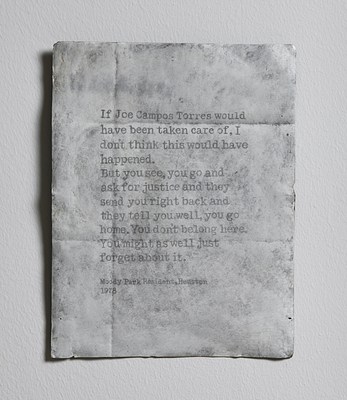 If Joe Campos Torres would
have been taken care of, I
don't think this would have
happened.
But you see, you go and
ask for justice and they
send you right back and
they tell you, well, you go
home. You don't belong here.
You might as well just
forget about it.
Moody Park Resident, Houston
1978